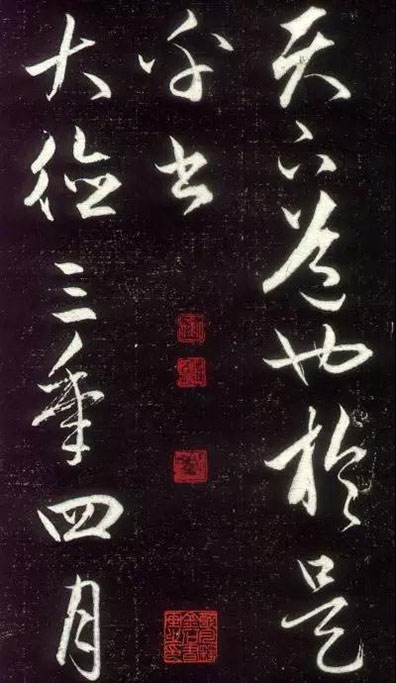 天下道也於是
乎書
大德三年四月